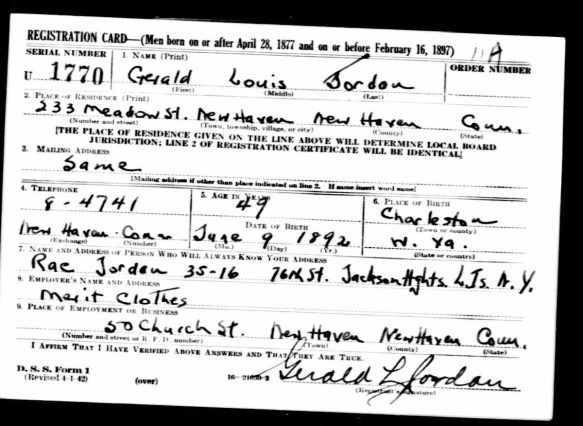 REGISTRATION CARD—(Men born on or after April 28, 1877 and on or before February 16, 1897)
SERIAL NUMBER 1. NAME (Print) ORDER NUMBER
U 1770 Gerald Louis Jordan
(First) (Middle) (Last)
2. PLACE OF RESIDENCE (Print)
233 Meadow St. New Haven New Haven Conn.
(Number and street) (Town, township, village, or city) (County) (State)
[THE PLACE OF RESIDENCE GIVEN ON THE LINE ABOVE WILL DETERMINE LOCAL BOARD
JURISDICTION; LINE 2 OF REGISTRATION CERTIFICATE WILL BE IDENTICAL]
3. MAILING ADDRESS
Same
[Mailing address if other than place indicated on line 2. If same insert word same]
4. TELEPHONE 5. AGE IN YEARS 6. PLACE OF BIRTH
8-4741 49 Charleston
DATE OF BIRTH (Town or county)
New Haven Conn June 9 1892 W. Va.
(Exchange) (Number) (Mo.) (Day) (Yr.) (State or country)
7. NAME AND ADDRESS OF PERSON WHO WILL ALWAYS KNOW YOUR ADDRESS
Rae Jordan 35-16 76th St. Jackson Hghts. L. Is. N. Y.
8. EMPLOYER'S NAME AND ADDRESS
Merit Clothes
9. PLACE OF EMPLOYMENT OR BUSINESS
50 Church St. New Haven New Haven Conn.
(Number and street or R. F. D. number) (Town) (County) (State)
I AFFIRM THAT I HAVE VERIFIED ABOVE ANSWERS AND THAT THEY ARE TRUE.
D. S. S. Form 1
(Revised 4-1-42) (over) Gerald L Jordan
(Registrant's signature)